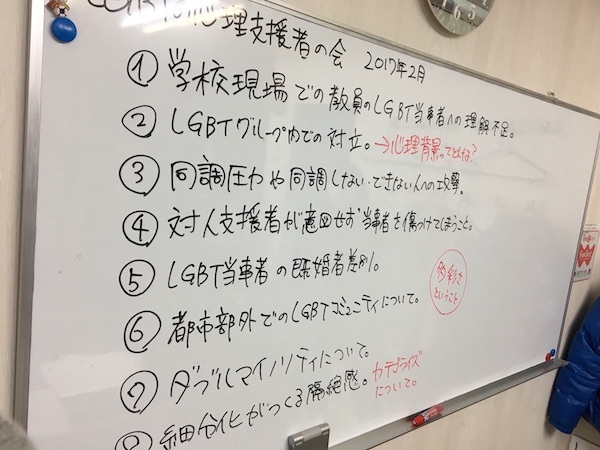 LGBTの心理支援者の会 2017年2月
① 学校現場での教員のLGBT当事者への理解不足。
② LGBTグループ内での対立。→心理背景ってどんな?
③ 同調圧力や同調しない・できない人への攻撃。
④ 対人支援者が意図せず当事者を傷つけてしまうこと。
⑤ LGBT当事者の既婚者差別。
多彩さ
ということ
⑥ 都市部外でのLGBTコミュニティについて。
⑦ ダブルマイノリティについて。
⑧ 細分化がつくる隔絶感。カテゴライズ
について。